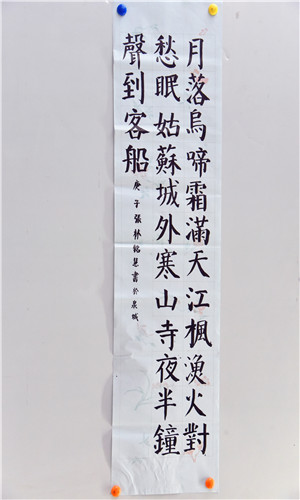 月落烏啼霜滿天江楓漁火對
愁眠姑蘇城外寒山寺夜半鐘
聲到客船
庚子張林銘慧書於泉城